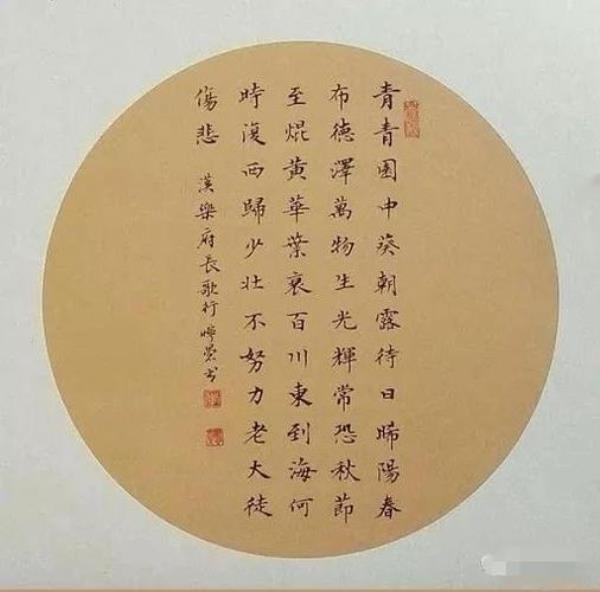 青青園中葵朝露待日晞陽春
布德澤萬物生光輝常恐秋節
至焜黃華葉衰百川東到海何
時復西歸少壯不努力老大徒
傷悲 漢樂府長歌行 书